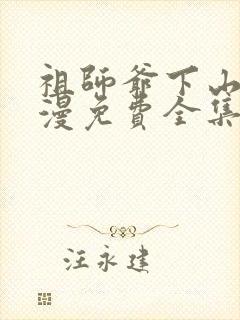 祖師爺下山
漫免費全集
汪永建